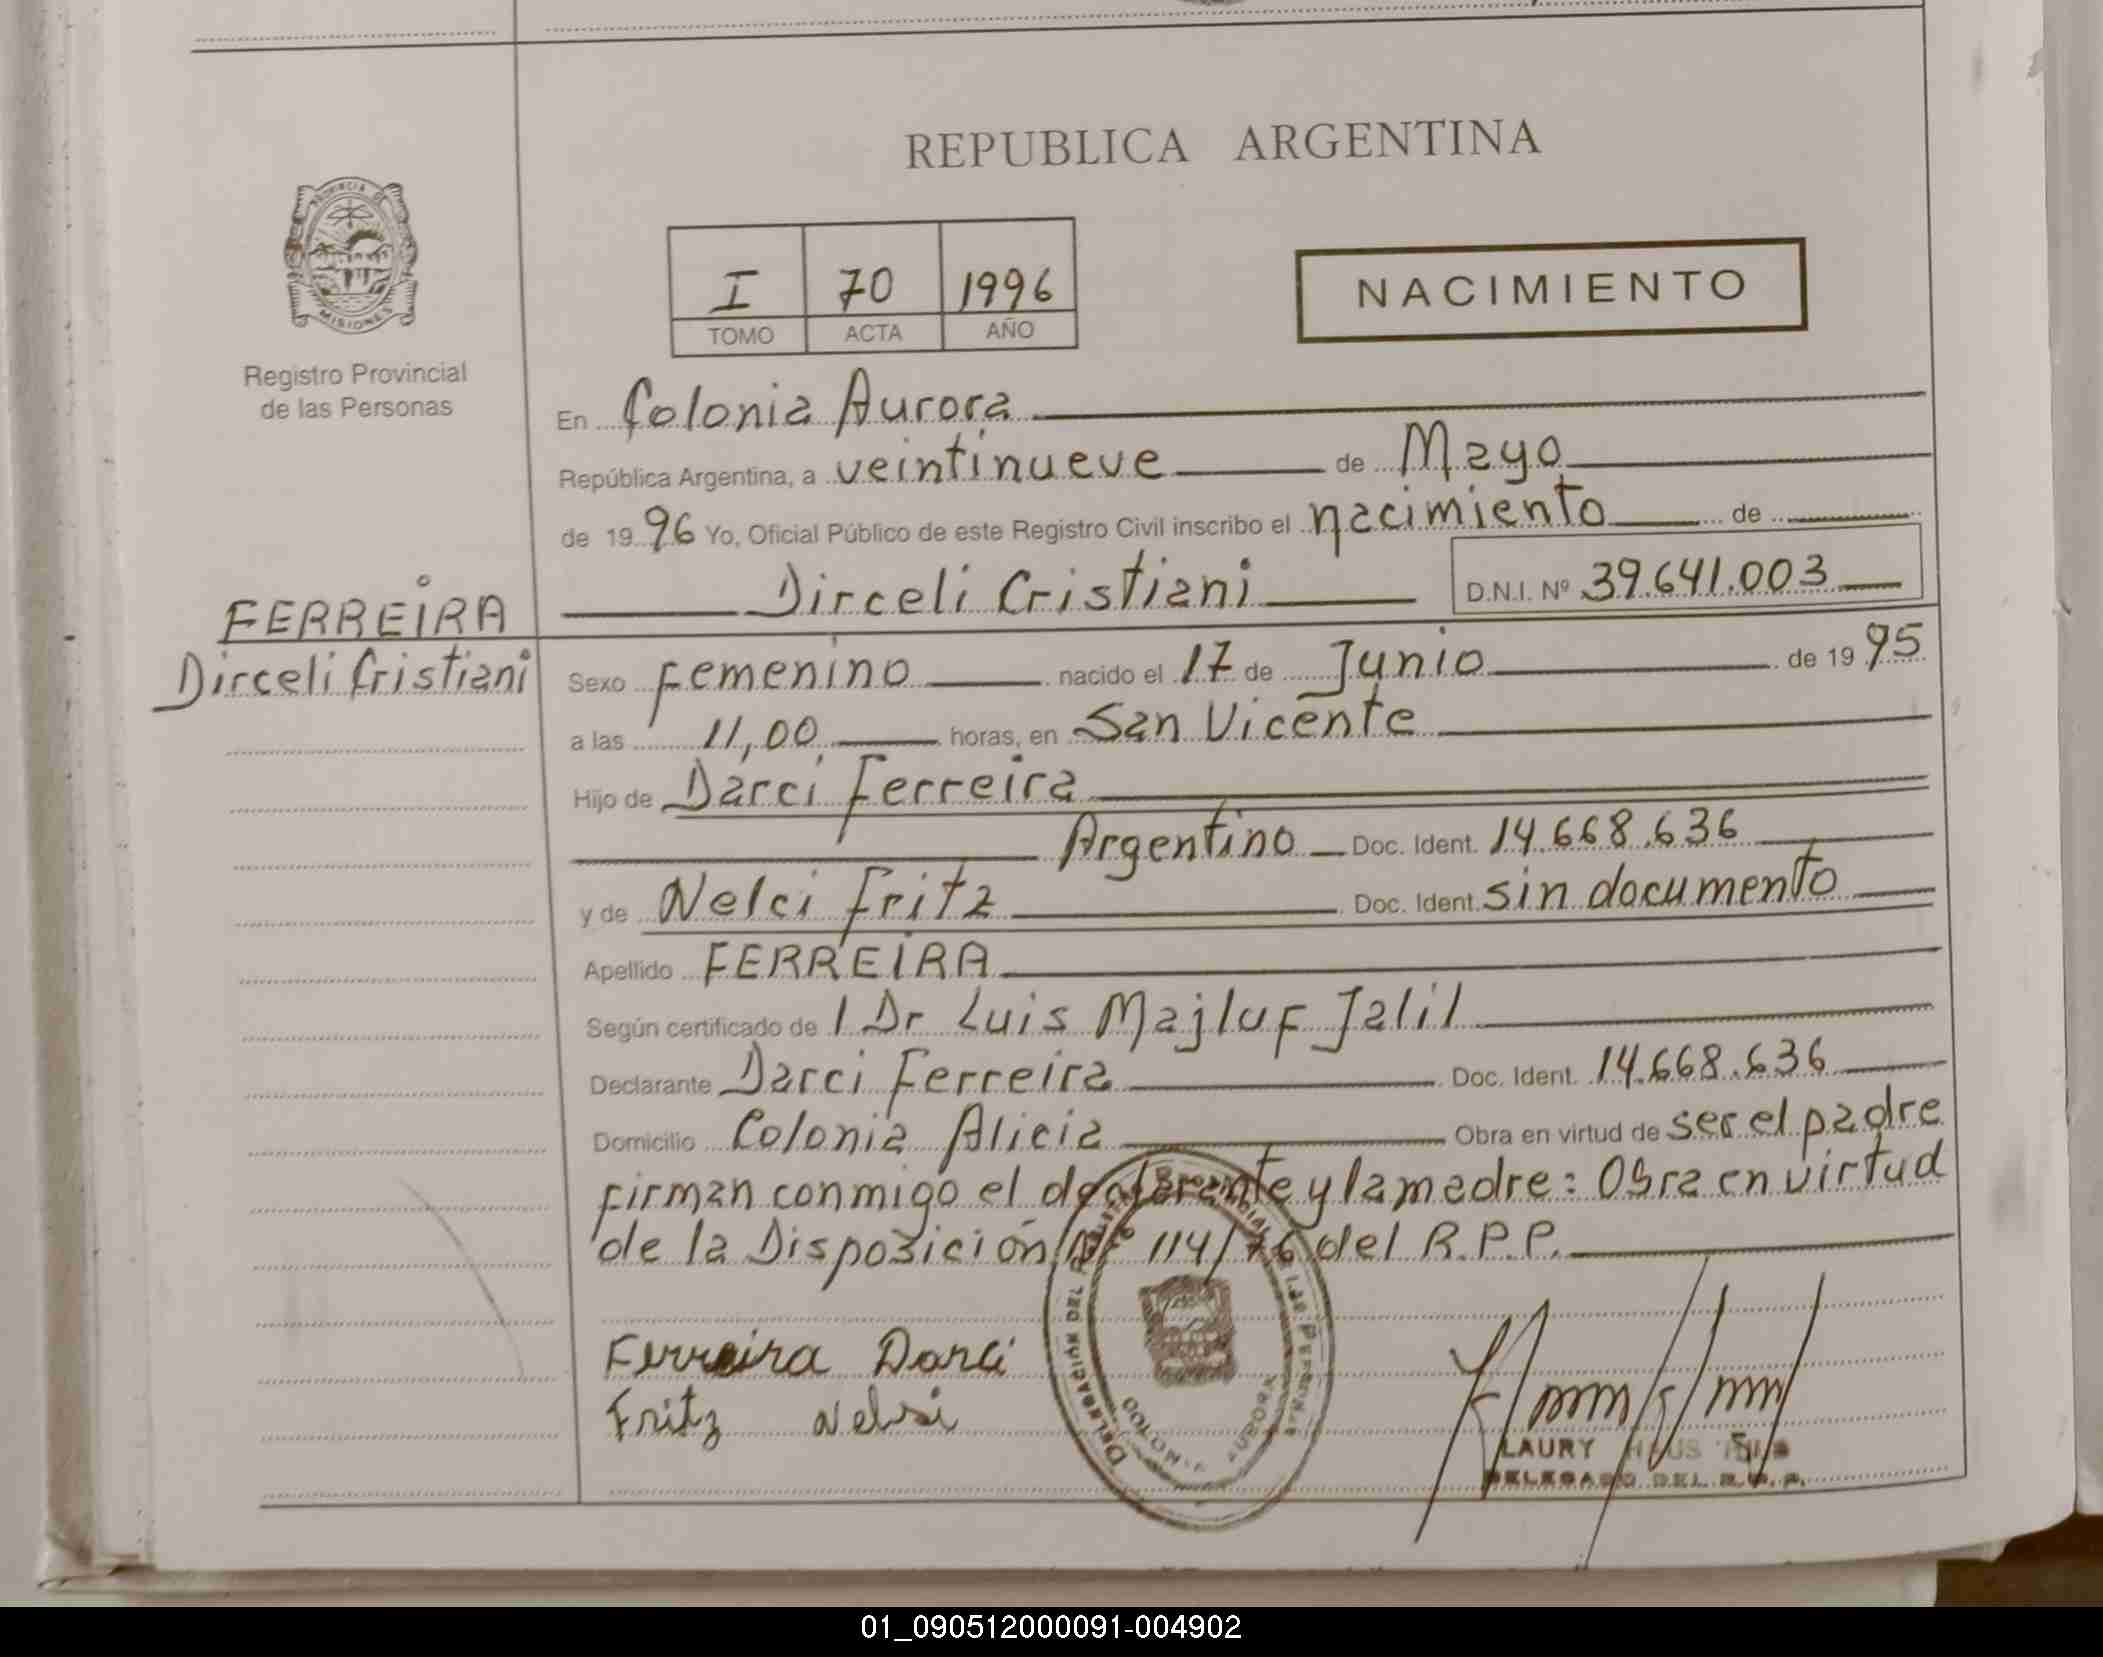 REPUBLICA ARGENTINA
PROVINCIA DE
MISIONES
Registro Provincial
de las Personas
I 70 1996
TOMO ACTA AÑO
NACIMIENTO
En Colonia Aurora
República Argentina, a veintinueve de Mayo
de 1996 Yo, Oficial Público de este Registro Civil inscribo el nacimiento de
Dirceli Cristiani D.N.I. Nº 39.641.003
FERREIRA
Dirceli Cristiani
Sexo Femenino nacido el 17 de Junio de 1995
a las 11,00 horas, en San Vicente
Hijo de Darci Ferreira
Argentino Doc. Ident. 14.668.636
y de Nelci Fritz Doc. Ident. sin documento
Apellido FERREIRA
Según certificado de l Dr Luis Majluf Jalil
Declarante Darci Ferreira Doc. Ident. 14.668.636
Domicilio Colonia Alicia Obra en virtud de ser el padre
firman conmigo el y la madre: Obra en virtud
de la Disposición Nº 114/76 del R.P.P.
Ferreira Darci
Fritz Nelsi
DELEGACION DEL REGISTRO PROVINCIAL DE LAS PERSONAS
AURORA
LAURY
DELEGADO DEL R.P.P.
01_090512000091-004902